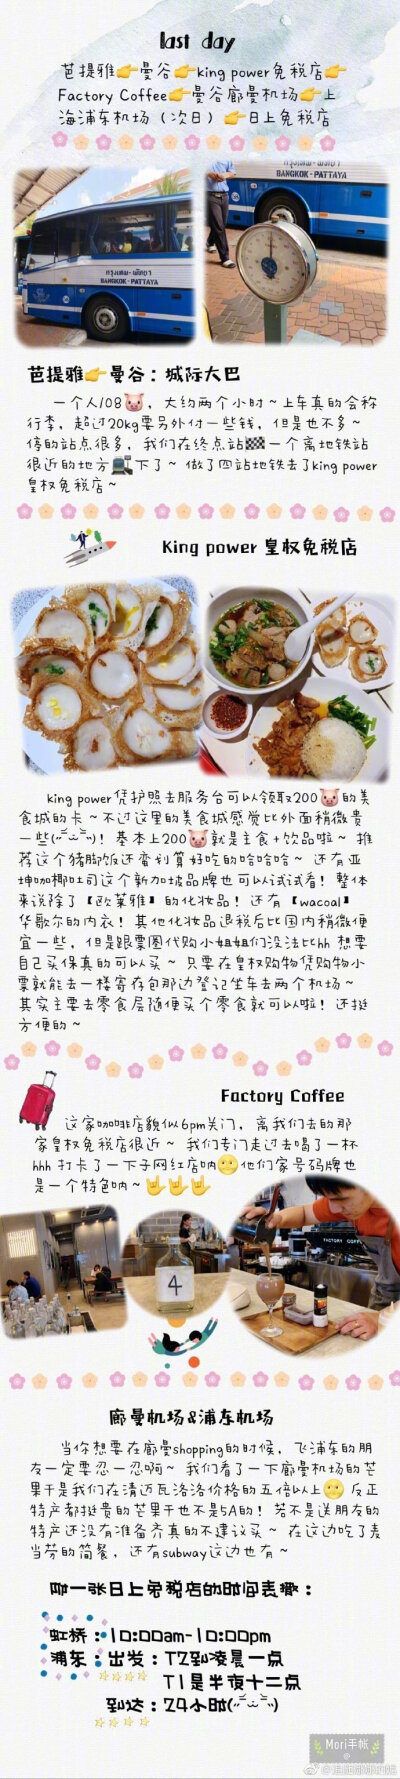 last day
芭提雅👉曼谷👉king power免税店👉
Factory Coffee👉曼谷廊曼机场👉上
海浦东机场（次日）👉日上免税店
กรุงเทพ-พัทยา
BANGKOK-PATTAYA
กรุงเทพ-พัทยา
BANGKOK-PATTAYA
芭提雅👉曼谷：城际大巴
一个人108🐷，大约两个小时~上车真的会称
行李，超过20kg要另外付一些钱，但是也不多~
停的站点很多，我们在终点站🏁一个离地铁站
很近的地方🚉下了~ 做了四站地铁去了king power
皇权免税店~
King power 皇权免税店
king power凭护照去服务台可以领取200🐷的美
食城的卡~不过这里的美食城感觉比外面稍微贵
一些(~˘⌣˘~)! 基本上200🐷就是主食+饮品啦~ 推
荐这个猪脚饭还蛮划算好吃的哈哈哈~ 还有亚
坤咖椰吐司这个新加坡品牌也可以试试看! 整体
来说除了【欧莱雅】的化妆品! 还有【wacoal】
华歌尔的内衣! 其他化妆品退税后比国内稍微便
宜一些，但是跟票圈代购小姐姐们没法比hh 想要
自己买保真的可以买~ 只要在皇权购物凭购物小
票就能去一楼寄存包那边登记坐车去两个机场~
其实主要去零食层随便买个零食就可以啦! 还挺
方便的~
Factory Coffee
这家咖啡店貌似6pm关门，离我们去的那
家皇权免税店很近~ 我们专门走过去喝了一杯
hhh 打卡了一下子网红店呐🌝他们家号码牌也
是一个特色呐~🤟🤟🤟
4
FACTORY COFFEE
廊曼机场&浦东机场
当你想要在廊曼shopping的时候，飞浦东的朋
友一定要忍一忍啊~ 我们看了一下廊曼机场的芒
果干是我们在清迈瓦洛洛价格的五倍以上🌝 反正
特产都挺贵的芒果干也不是5A的! 若不是送朋友的
特产还没有准备齐真的不建议买~ 在这边吃了麦
当劳的简餐，还有subway这边也有~
附一张日上免税店的时间表撒：
虹桥：10:00am-10:00pm
浦东：出发：T2到凌晨一点
T1是半夜十二点
到达：24小时(~˘⌣˘~)
Mori手帐